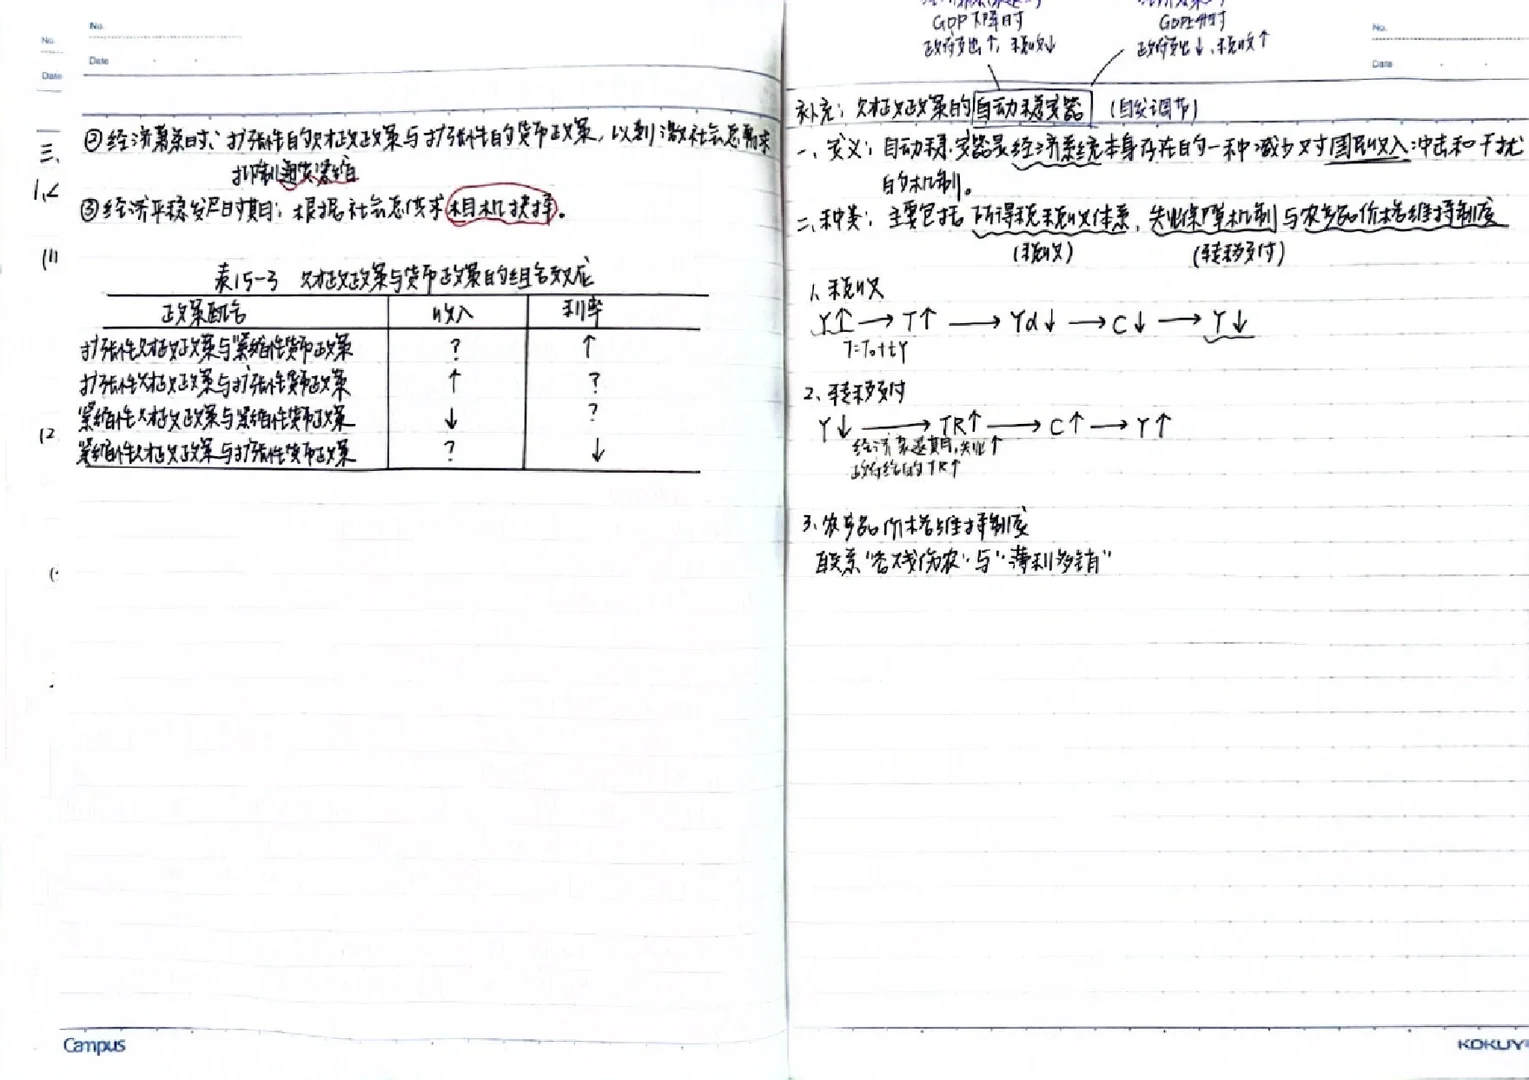 No.
Date
No.
Date
三、
1、
(11
(2
②经济萧条时、扩张性的财政政策与扩张性的货币政策，以刺激社会总需求
抑制通货紧缩
③经济平稳发展时期：根据社会总需求相机抉择。
表15-3 财政政策与货币政策的组合效应
政策配合 收入 利率
扩张性财政政策与紧缩性货币政策 ? ↑
扩张性财政政策与扩张性货币政策 ↑ ?
紧缩性财政政策与紧缩性货币政策 ↓ ?
紧缩性财政政策与扩张性货币政策 ? ↓
Campus
GDP下降时
政府支出↑，税收↓
GDP上升时
政府支出↓，税收↑
No.
Date
补充：财政政策的自动稳定器 (自发调节)
一、定义：自动稳定器是经济系统本身存在的一种减少对国民收入冲击和干扰
的机制。
二、种类：主要包括 所得税税收体系、失业保障机制与农产品价格维持制度
(税收) (转移支付)
1、税收
Y↑→T↑→Yd↓→C↓→Y↓
T=T0+tY
2、转移支付
Y↓→TR↑→C↑→Y↑
经济衰退期，失业↑
政府给的TR↑
3、农产品价格维持制度
联系“谷贱伤农”与“薄利多销”
KOKUYO